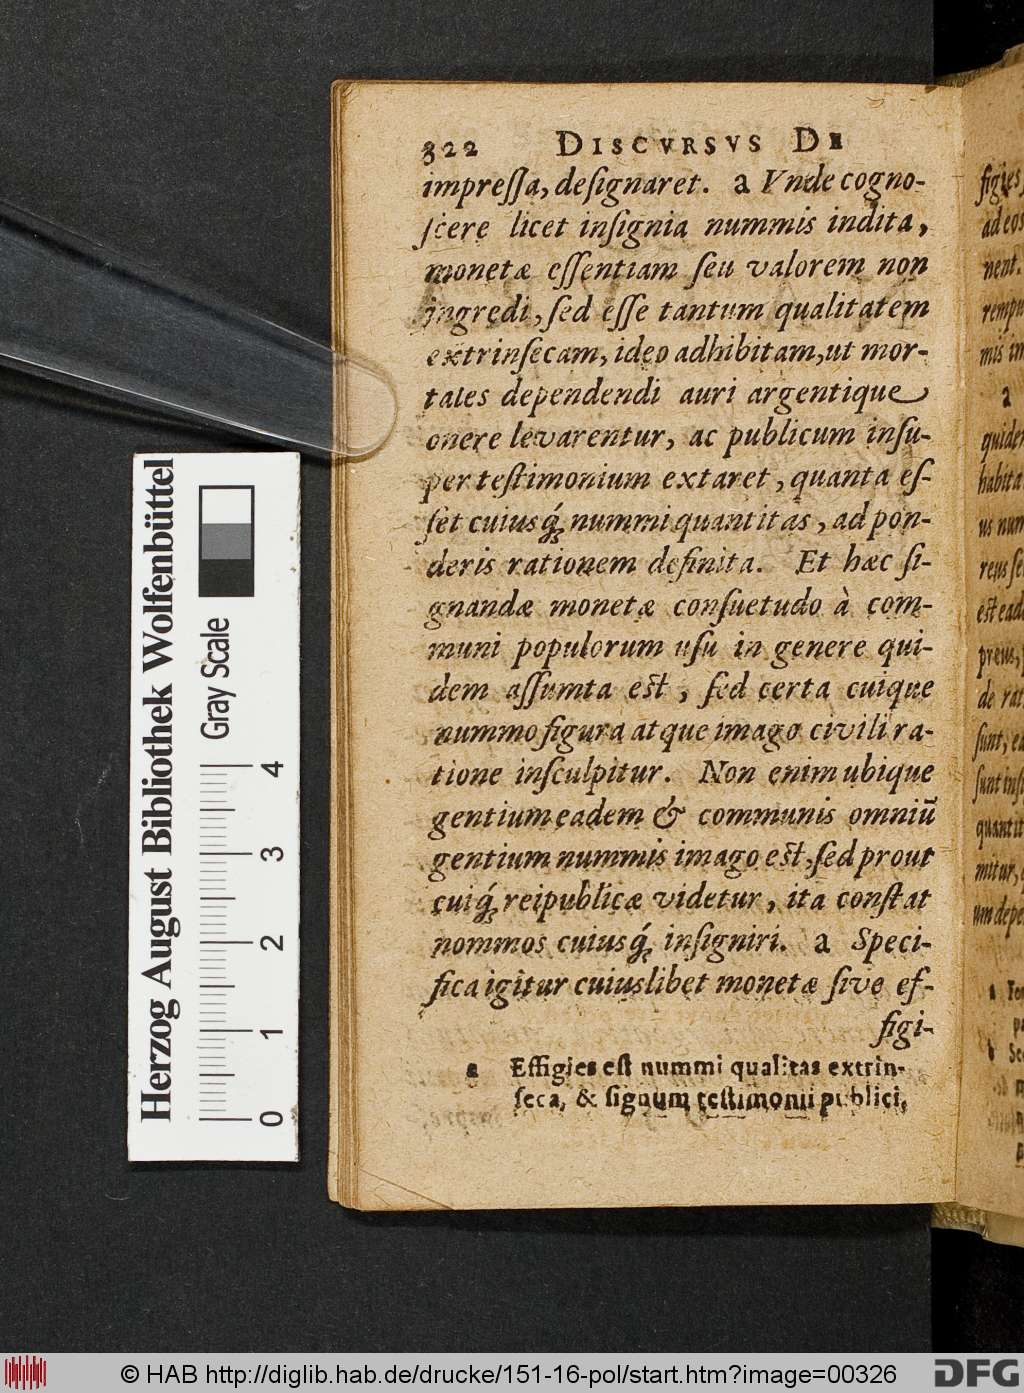 322 DISCVRSVS DE
impreſſa, deſignaret. a Vnde cogno-
ſcere licet inſignia nummis indita,
monetæ eſſentiam ſeu valorem non
ingredi, ſed eſſe tantum qualitatem
extrinſecam, ideo adhibitam, ut mor-
tales dependendi auri argentique
onere levarentur, ac publicum inſu-
per teſtimonium extaret, quanta eſ-
ſet cuiusq́; nummi quantitas, ad pon-
deris rationem definita. Et hæc ſi-
gnandæ monetæ conſuetudo à com-
muni populorum uſu in genere qui-
dem aſſumta eſt, ſed certa cuique
nummo figura atque imago civili ra-
tione inſculpitur. Non enim ubique
gentium eadem & communis omniũ
gentium nummis imago eſt, ſed prout
cuiq́; reipublicæ videtur, ita conſtat
nommos cuiusq́; inſigniri. a Speci-
fica igitur cuiuslibet monetæ ſive ef-
figi-
a Effigies eſt nummi qualitas extrin-
ſeca, & ſignum teſtimonii publici.
figies,
ad eos
nent.
rempu
mis im
a
quidem
habita
us num
reus ſe
eſt eade
preus,
de rat
ſunt, ea
ſunt inſi
quantit
mitur,
um depe
Herzog August Bibliothek Wolfenbüttel
Gray Scale
0 1 2 3 4
© HAB http://diglib.hab.de/drucke/151-16-pol/start.htm?image=00326
DFG